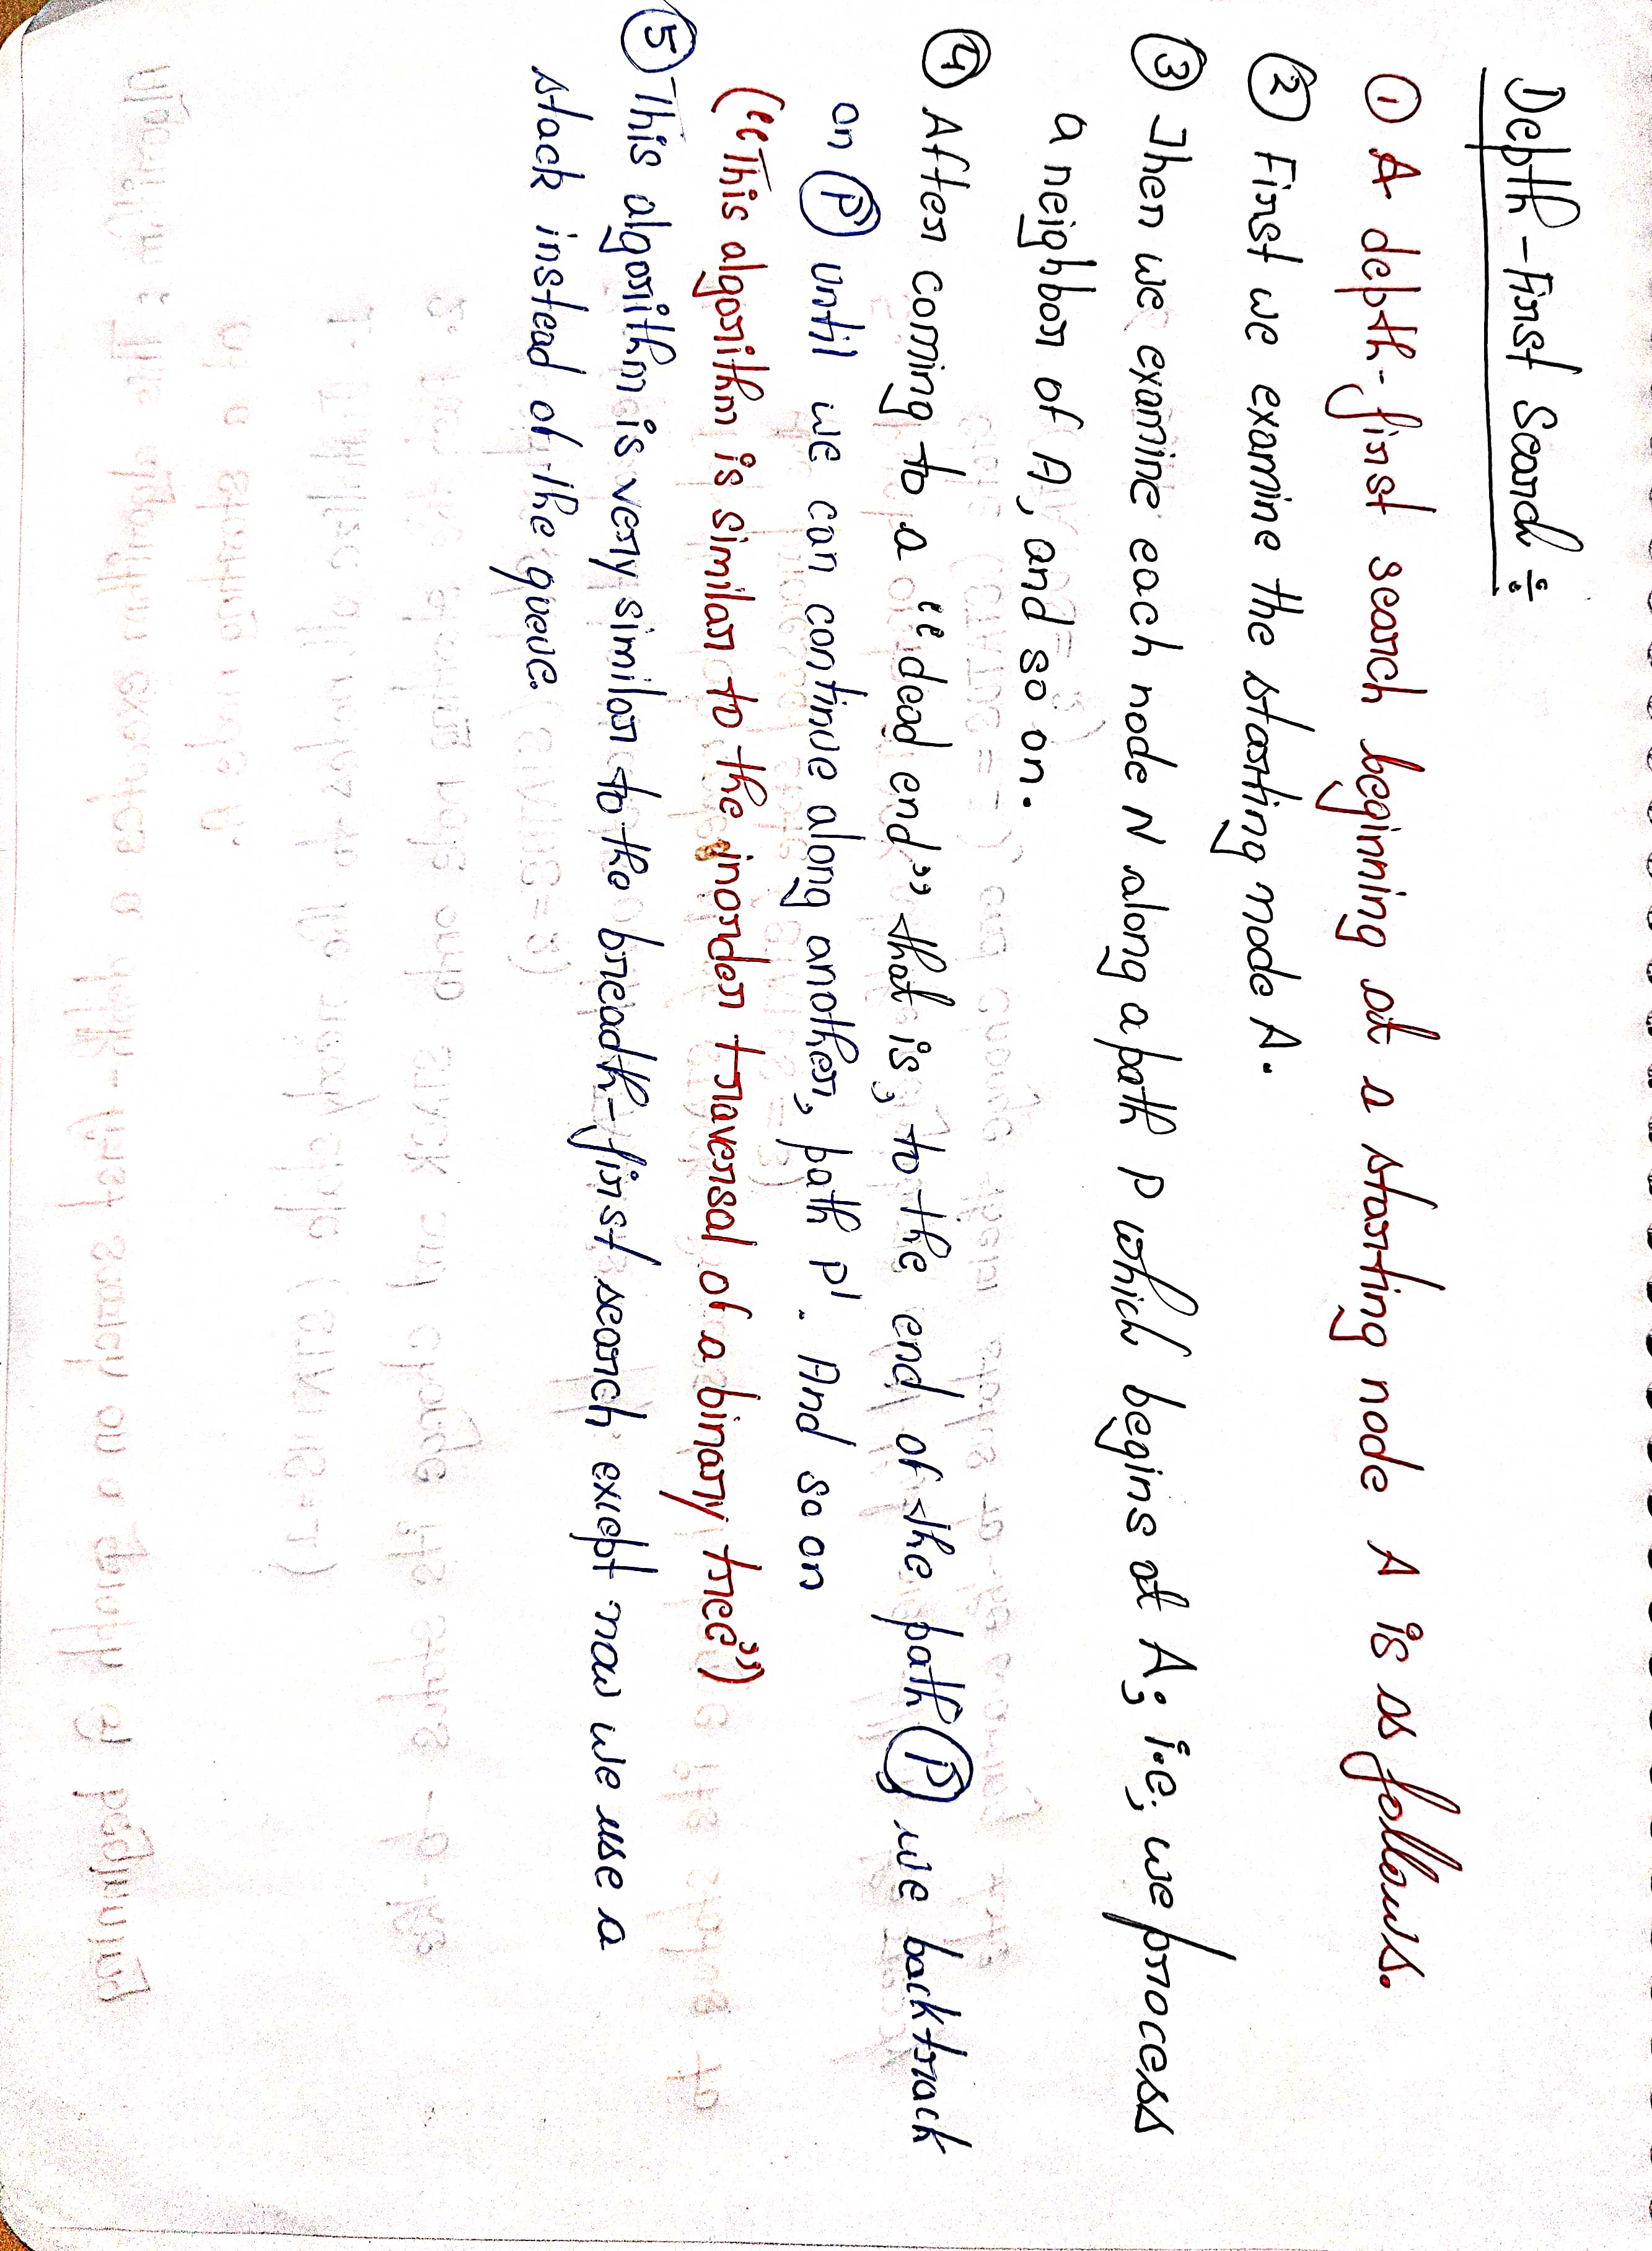 Depth-First Search :
① A depth-first search beginning at a starting node A is as follows.
② First we examine the starting node A.
③ Then we examine each node N along a path P which begins at A; i.e; we process
a neighbor of A, and so on.
④ After coming to a "dead end" that is, to the end of the path P we backtrack
on P until we can continue along another, path P'. And so on
("This algorithm is similar to the inorder traversal of a binary tree")
⑤ This algorithm is very similar to the breadth-first search except now we use a
stack instead of the queue.